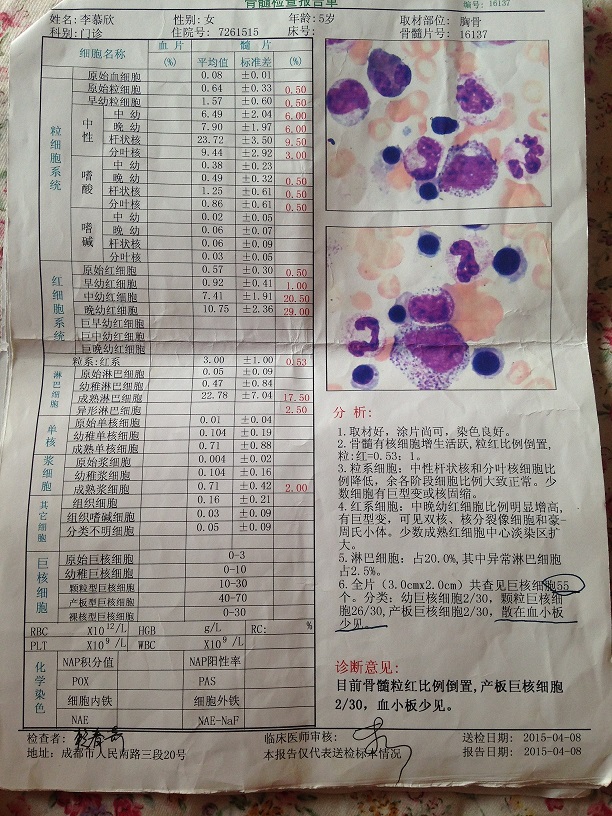 骨髓检查报告单
编号: 16137
姓名:李慕欣 性别:女 年龄:5岁 取材部位: 胸骨
科别:门诊 住院号: 7261515 床号: 骨髓片号: 16137
细胞名称 血 片 髓 片
(%) 平均值 标准差 (%)
粒细胞系统
原始血细胞 0.08 ±0.01
原始粒细胞 0.64 ±0.33 0.50
早幼粒细胞 1.57 ±0.60 0.50
中性
中 幼 6.49 ±2.04 6.00
晚 幼 7.90 ±1.97 6.00
杆状核 23.72 ±3.50 9.50
分叶核 9.44 ±2.92 3.00
嗜酸
中 幼 0.38 ±0.23
晚 幼 0.49 ±0.32 0.50
杆状核 1.25 ±0.61 0.50
分叶核 0.86 ±0.61 0.50
嗜碱
中 幼 0.02 ±0.05
晚 幼 0.06 ±0.07
杆状核 0.06 ±0.09
分叶核 0.03 ±0.05
红细胞系统
原始红细胞 0.57 ±0.30 0.50
早幼红细胞 0.92 ±0.41 1.00
中幼红细胞 7.41 ±1.91 20.50
晚幼红细胞 10.75 ±2.36 29.00
巨早幼红细胞
巨中幼红细胞
巨晚幼红细胞
粒系:红系 3.00 ±1.00 0.53
淋巴细胞
原始淋巴细胞 0.05 ±0.09
幼稚淋巴细胞 0.47 ±0.84
成熟淋巴细胞 22.78 ±7.04 17.50
异形淋巴细胞 2.50
单核
原始单核细胞 0.01 ±0.04
幼稚单核细胞 0.104 ±0.19
成熟单核细胞 0.71 ±0.88
浆细胞
原始浆细胞 0.004 ±0.02
幼稚浆细胞 0.104 ±0.16
成熟浆细胞 0.71 ±0.42 2.00
其它细胞
组织细胞 0.16 ±0.21
组织嗜碱细胞 0.03 ±0.09
分类不明细胞 0.05 ±0.09
巨核细胞
原始巨核细胞 0-3
幼稚巨核细胞 0-10
颗粒型巨核细胞 10-30
产板型巨核细胞 40-70
裸核型巨核细胞 0-30
RBC X10¹²/L HGB g/L RC: %
PLT X10⁹ /L WBC X10⁹ /L
化学染色
NAP积分值 NAP阳性率
POX PAS
细胞内铁 细胞外铁
NAE NAE-NaF
分 析:
1.取材好，涂片尚可，染色良好。
2.骨髓有核细胞增生活跃,粒红比例倒置,
粒:红=0.53：1。
3.粒系细胞：中性杆状核和分叶核细胞比
例降低，余各阶段细胞比例大致正常。少
数细胞有巨型变或核固缩。
4.红系细胞：中晚幼红细胞比例明显增高,
有巨型变，可见双核、核分裂像细胞和豪-
周氏小体。少数成熟红细胞中心淡染区扩
大。
5.淋巴细胞：占20.0%,其中异常淋巴细胞
占2.5%。
6.全片（3.0cmx2.0cm）共查见巨核细胞55
个。分类：幼巨核细胞2/30，颗粒巨核细
胞26/30,产板巨核细胞2/30，散在血小板
少见。
诊断意见:
目前骨髓粒红比例倒置,产板巨核细胞
2/30，血小板少见。
检查者: 临床医师审核: 送检日期: 2015-04-08
地址: 成都市人民南路三段20号 本报告仅代表送检标本情况 报告日期: 2015-04-08